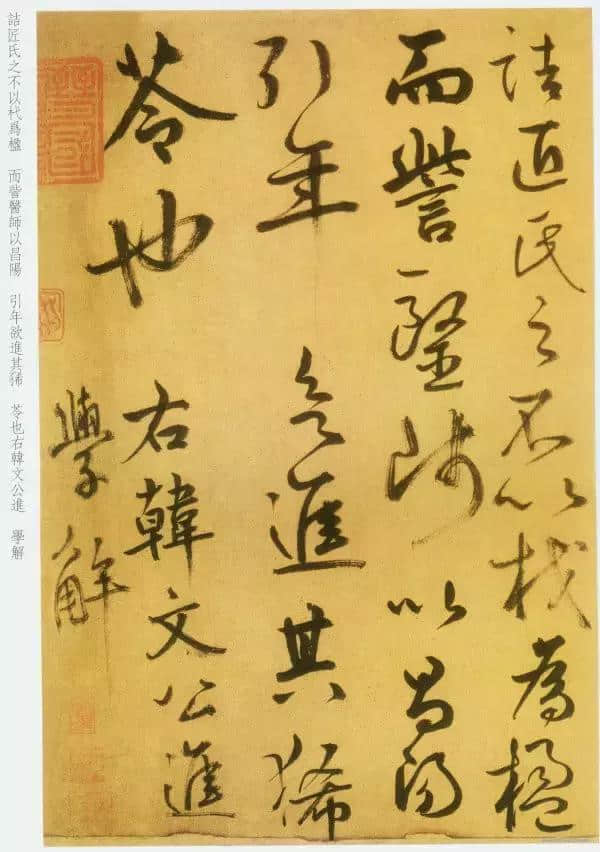 詰匠氏之不以杙爲楹
而訾醫師以昌陽
引年欲進其豨
苓也右韓文公進
學解
詰匠氏之不以杙爲楹 而訾醫師以昌陽 引年欲進其豨 苓也右韓文公進 學解